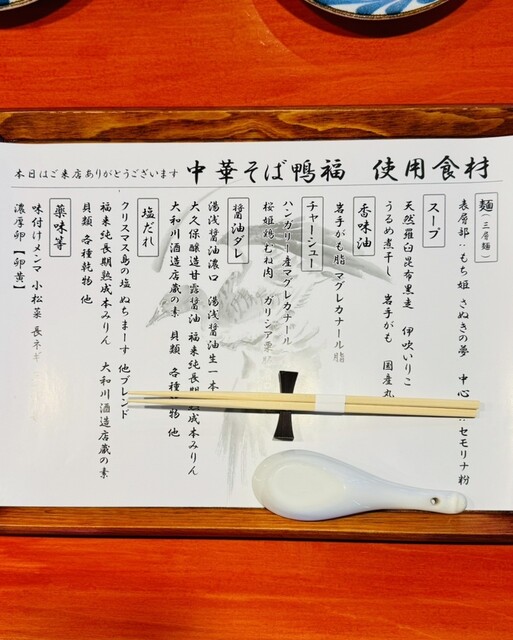 本日はご来店ありがとうございます 中華そば鴨福 使用食材
麺(三層麺)
表層部:もち姫 さぬきの夢 中心 セモリナ粉
スープ
天然羅臼昆布黒走 伊吹いりこ
うるめ煮干し 岩手がも 国産丸
香味油
岩手がも脂 マグレカナール脂
チャーシュー
ハンガリー産マグレカナール
桜姫鶏むね肉 ガリシア栗
醤油ダレ
湯浅醤油濃口 湯浅醤油生一本
大久保醸造甘露醤油 福来純長期熟成本みりん
大和川酒造店蔵の素 貝類 各種乾物 他
塩だれ
クリスマス島の塩 ぬちまーす 他ブレンド
福来純長期熟成本みりん 大和川酒造店蔵の素
貝類 各種乾物 他
薬味等
味付けメンマ 小松菜 長ネギ
濃厚卵【卵黄】